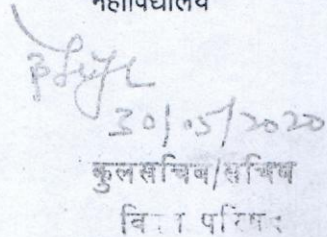 महाविद्यालय
30/05/2020
कुलसचिव/सचिव
परिषद